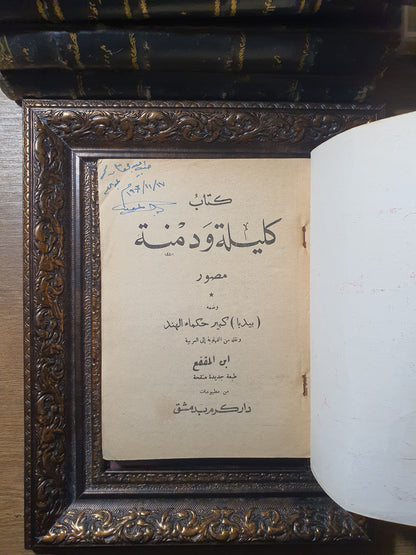 ١٩٦/١١/٢٧
كتاب
كليلة ودمنة
مصور
*
وضعه
( بيدبا ) كبير حكماء الهند
ونقله من الفهلوية إلى العربية
ابن المقفع
طبعة جديدة منقحة
من مطبوعات
دار كرم بدمشق